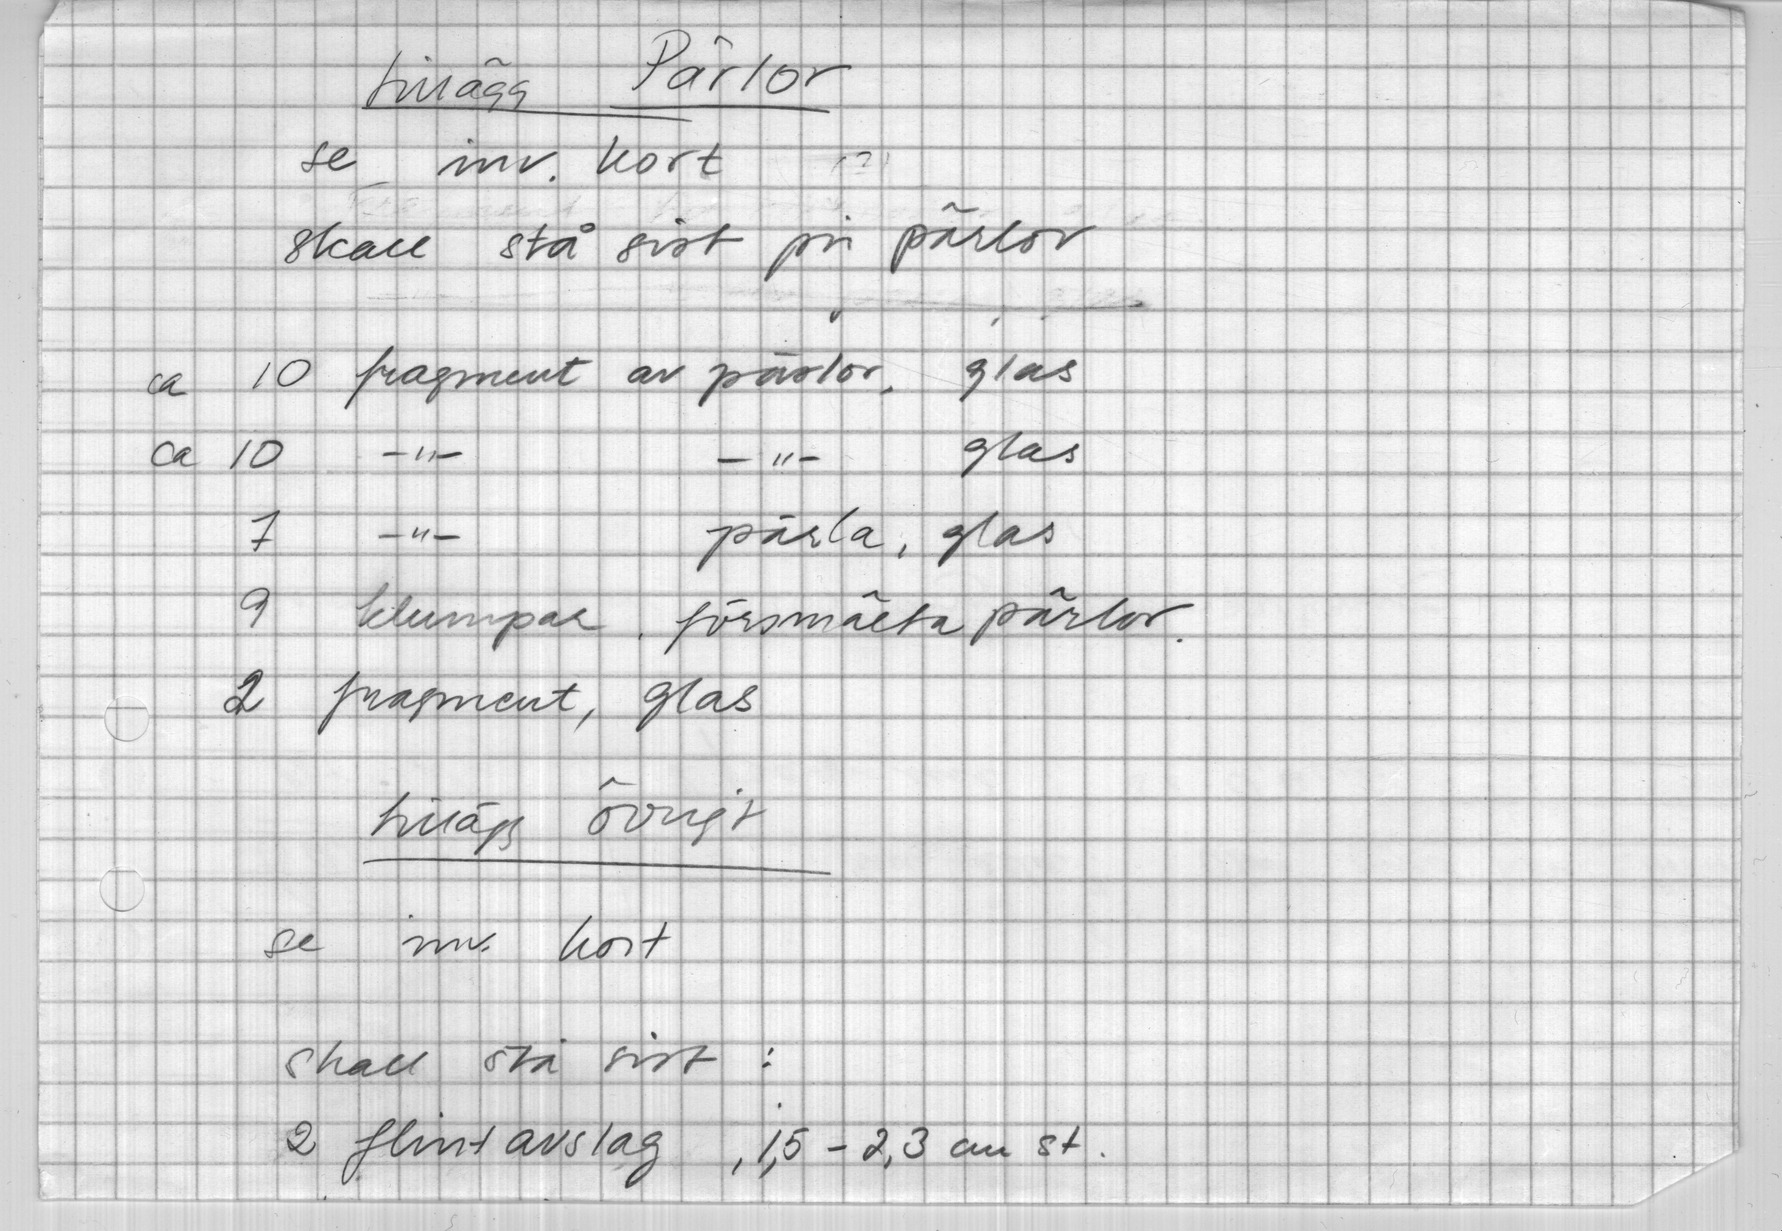 tillägg Pärlor
se inv. kort (?)
skall stå sist på pärlor
ca 10 fragment av pärlor, glas
ca 10 -"- -"- glas
7 -"- pärla, glas
9 klumpar, försmälta pärlor.
2 fragment, glas
tillägg övrigt
se inv. kort
skall stå sist :
2 flintavslag, 1,5 - 2,3 cm st.